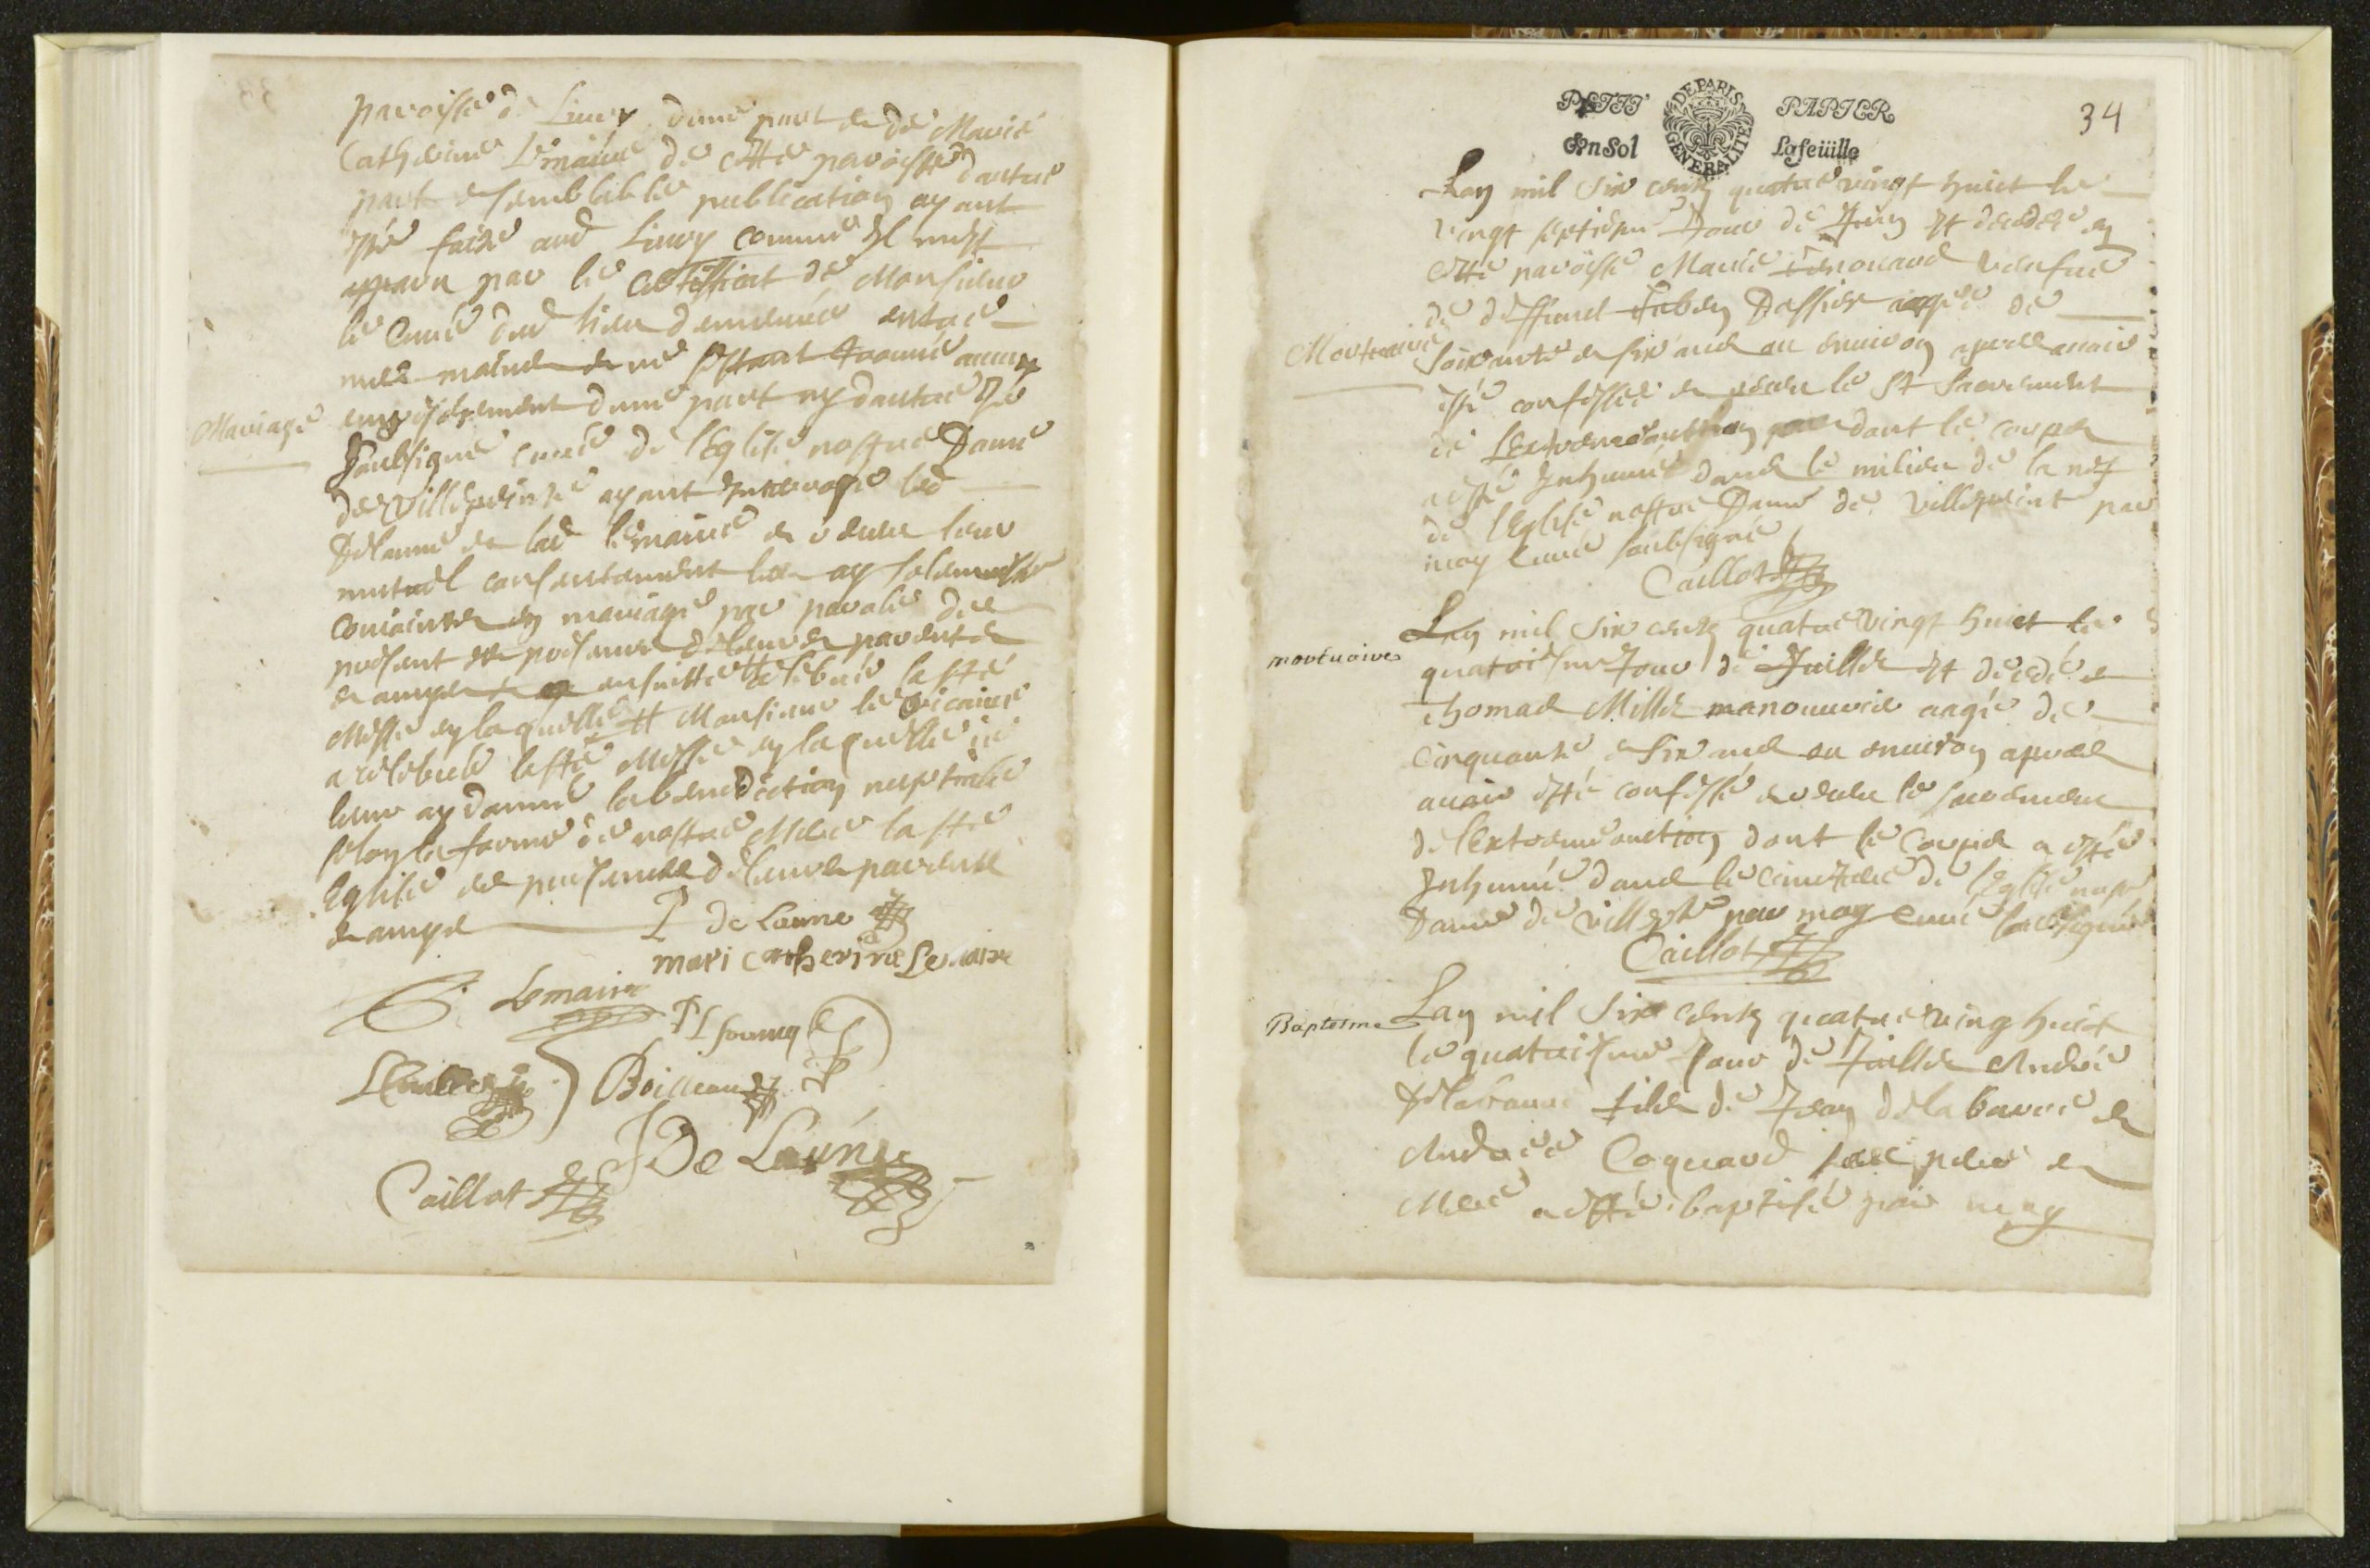 paroisse de Livry dune part et de Marie
Catherine Lemaire de cette paroisse dautre
part et semblable publication ayant
esté faite aud Livry comme Il mest
apparu par le certifficat de Monsieur
le Curé dud lieu demeuré entre
mes mains et ne sestant trouvé aucun
Mariage
empeschement dune part ny dautre Je
soubsigné curé de lEglise nostre Dame
de Villepeinte ayant Interrogé led
Delaune et lad lemaire et receu leur
mutuel consentement les ay solemnellemt
conioints en mariage par parolle de
present et presence de leurs parents
et amys et ensuitte celebré la ste
Messe en laquelle Monsieur le vicaire
a celebré la ste Messe en laquelle ie
leur ay donné la benediction nuptialle
selon la forme de nostre Mere la ste
Eglise en presence de leurs parents
et amys
P De Laune
mari catherine Lemaire
Lemaire
Boilleau
J De Launay
Caillot
PETIT PAPIER
DE PARIS
GENERALITE
Un Sol La feüille
34
Lan mil six cents quatre vingt huict le
vingt septiesme Jour de Juin est decedee en
cette paroisse Marie Renouard veufue
de deffunct aagée de
Mortuaire
soixante et six ans ou environ apres avoir
esté confessée et receu le st sacrement
de lExtremeonction dont le corps
a esté Inhumé dans le milieu de la nef
de lEglise nostre Dame de Villepeint par
moy Curé soubsigné
Caillot
Lan mil six cents quatre vingt huict le
mortuaire
quatriesme Jour de Juillet est decedé
Thomas Millet manouvrié aagé de
cinquante et six ans ou environ apres
avoir esté confessé et receu le sacrement
de lExtremeonction dont le Corps a esté
Inhumé dans le cimetiere de lEglise nostre
Dame de villepte par moy Curé soubsigné
Caillot
Baptesme
Lan mil six cents quatre ving huict
le quatriesme Jour de Juillet André
Delabarre fils de Jean de la barre et
Andrée Coquard ses pere et
Mere a esté baptisé par moy